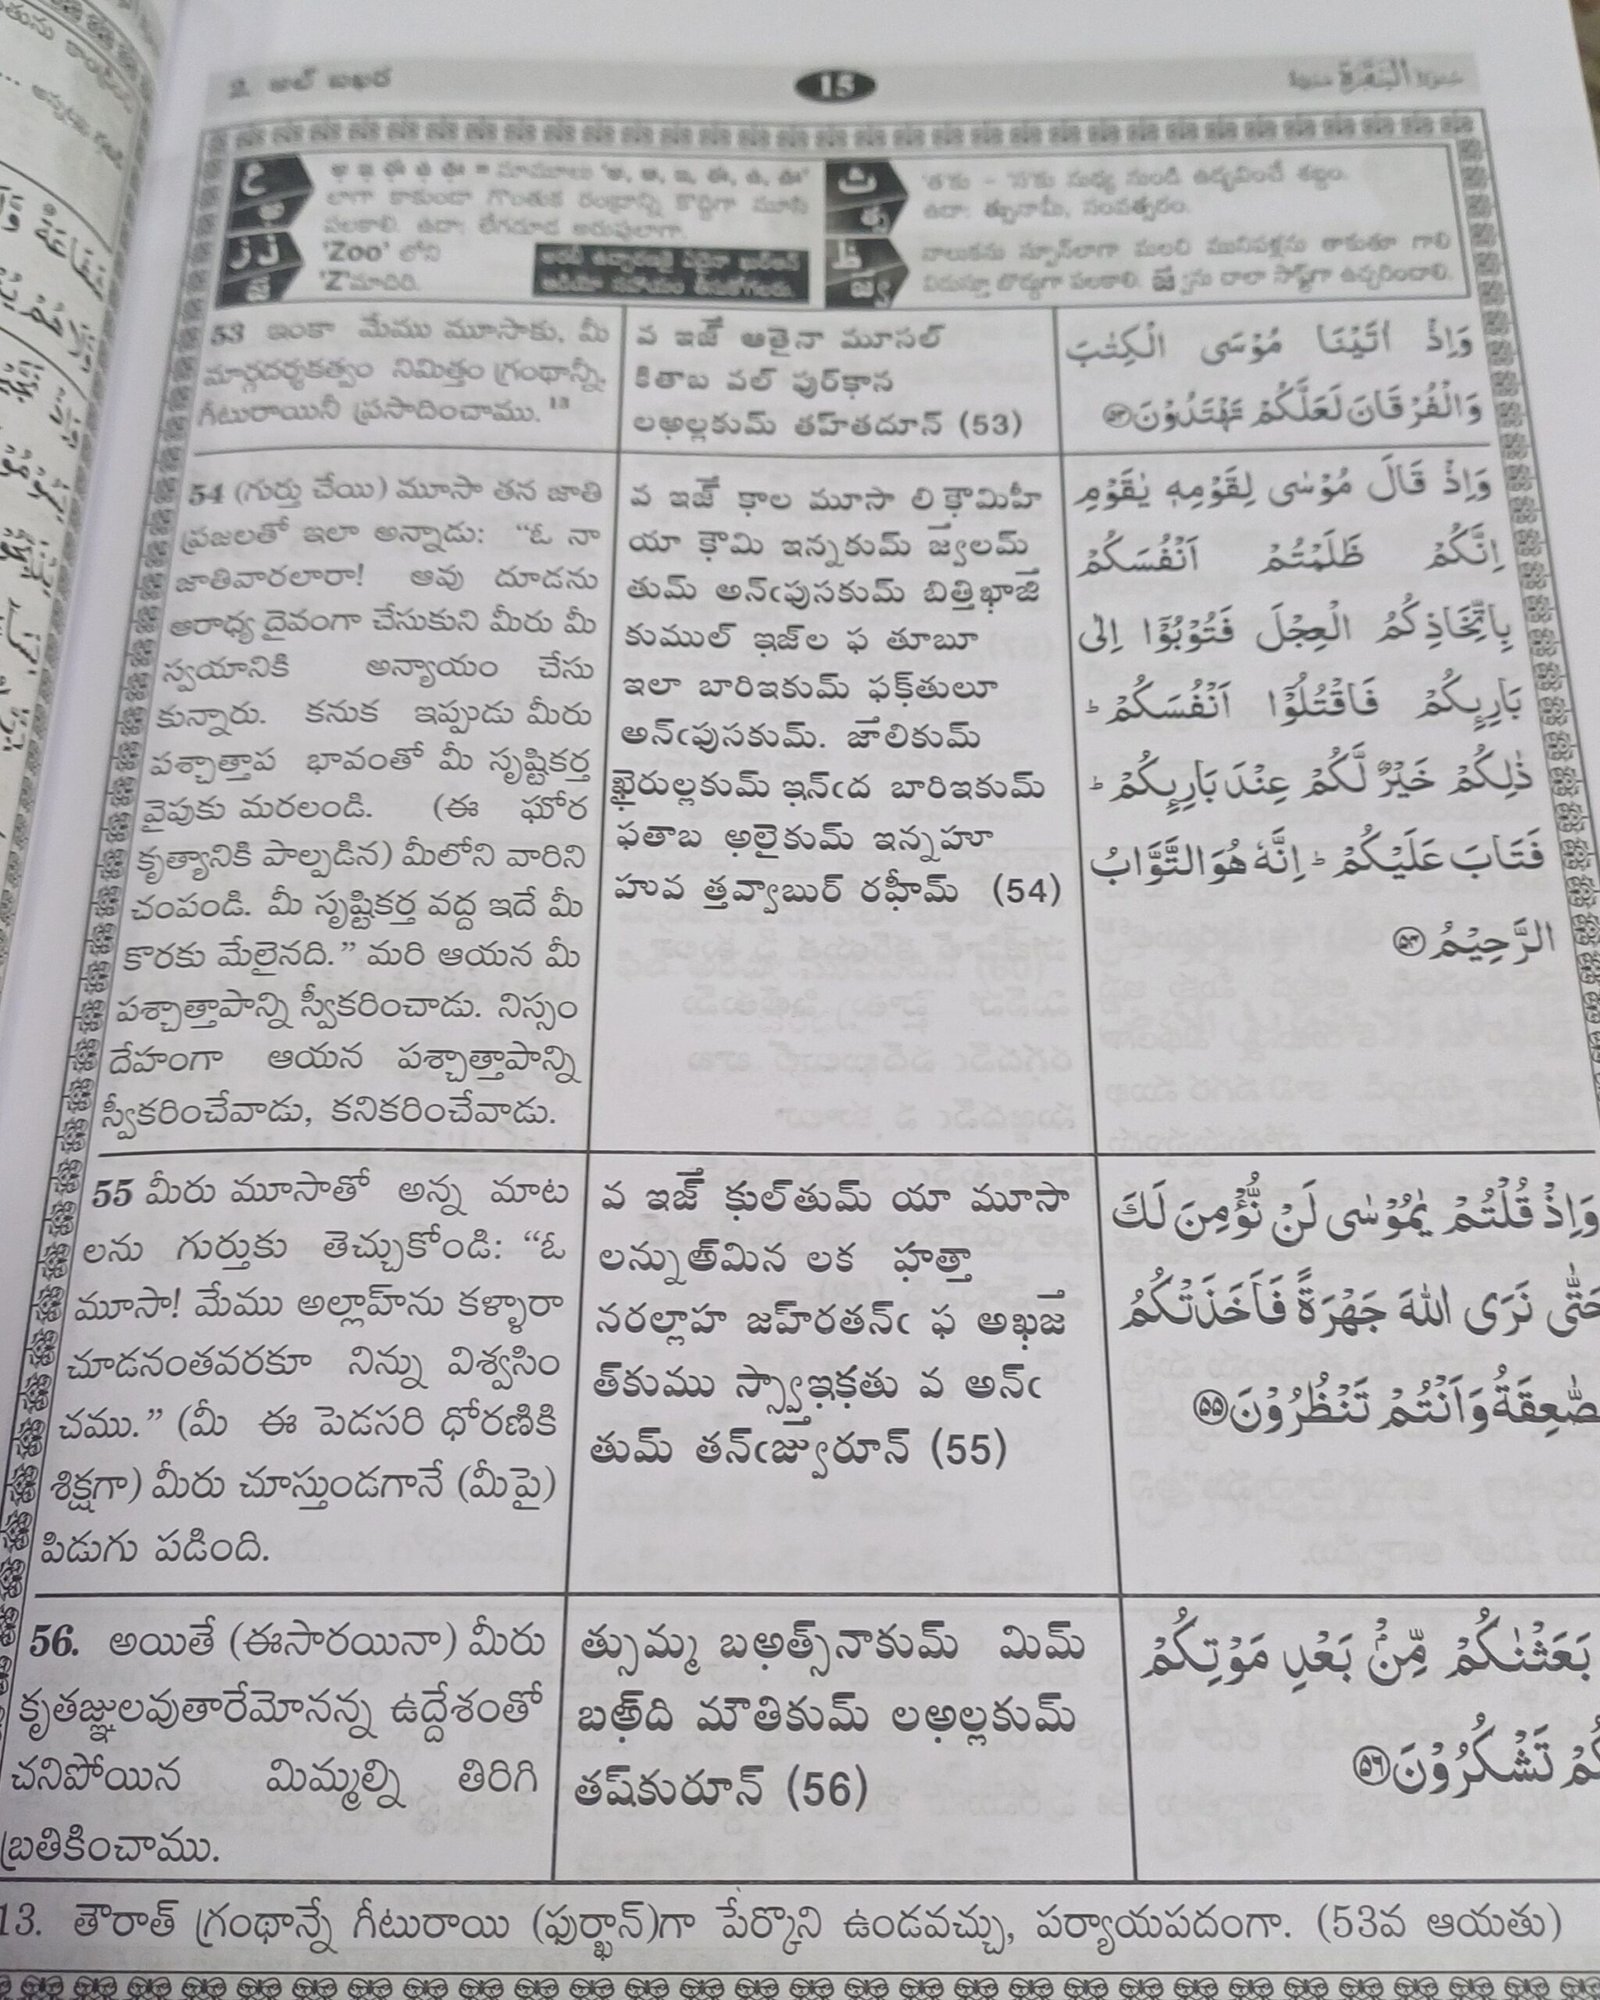 2. అల్ బఖర
15
سورة البقرة
ع
అ ఇ ఈ ఉ ఊ = మామూలు 'అ, ఆ, ఇ, ఈ, ఉ, ఊ'
లాగా కాకుండా గొంతుక రంధ్రాన్ని కొద్దిగా మూసి
పలకాలి. ఉదా: లేగదూడ అరుపులాగా.
ذ ز
'Zoo' లోని
'Z'మాదిరి.
ث
'త'కు - 'స'కు మధ్య నుండి ఉద్భవించే శబ్దం.
ఉదా: త్సునామీ, సంవత్సరం.
ظ
నాలుకను స్పూన్‌లాగా మలచి మునిపళ్లను తాకుతూ గాలి
విడుస్తూ బొద్దుగా పలకాలి.
53 ఇంకా మేము మూసాకు, మీ
మార్గదర్శకత్వం నిమిత్తం గ్రంథాన్నీ,
గీటురాయినీ ప్రసాదించాము. 13
వ ఇజ్ ఆతైనా మూసల్
కితాబ వల్ ఫుర్‌కాన
లఅల్లకుమ్ తహ్‌తదూన్ (53)
وَاِذْ اٰتَيْنَا مُوْسَى الْكِتٰبَ
وَالْفُرْقَانَ لَعَلَّكُمْ تَهْتَدُوْنَ ۝٥٣
54 (గుర్తు చేయి) మూసా తన జాతి
ప్రజలతో ఇలా అన్నాడు: “ఓ నా
జాతివారలారా! ఆవు దూడను
ఆరాధ్య దైవంగా చేసుకుని మీరు మీ
స్వయానికి అన్యాయం చేసు
కున్నారు. కనుక ఇప్పుడు మీరు
పశ్చాత్తాప భావంతో మీ సృష్టికర్త
వైపుకు మరలండి. (ఈ ఘోర
కృత్యానికి పాల్పడిన) మీలోని వారిని
చంపండి. మీ సృష్టికర్త వద్ద ఇదే మీ
కొరకు మేలైనది.” మరి ఆయన మీ
పశ్చాత్తాపాన్ని స్వీకరించాడు. నిస్సం
దేహంగా ఆయన పశ్చాత్తాపాన్ని
స్వీకరించేవాడు, కనికరించేవాడు.
వ ఇజ్ కాల మూసా లి కౌమిహీ
యా కౌమి ఇన్నకుమ్ జ్వలమ్
తుమ్ అన్ఁఫుసకుమ్ బిత్తిఖాజి
కుముల్ ఇజ్‌ల ఫ తూబూ
ఇలా బారిఇకుమ్ ఫక్‌తులూ
అన్ఁఫుసకుమ్. జాలికుమ్
ఖైరుల్లకుమ్ ఇన్ఁద బారిఇకుమ్
ఫతాబ అలైకుమ్ ఇన్నహూ
హువ త్తవ్వాబుర్ రహీమ్ (54)
وَاِذْ قَالَ مُوْسٰى لِقَوْمِهٖ يٰقَوْمِ
اِنَّكُمْ ظَلَمْتُمْ اَنْفُسَكُمْ
بِاتِّخَاذِكُمُ الْعِجْلَ فَتُوْبُوْٓا اِلٰى
بَارِىِٕكُمْ فَاقْتُلُوْٓا اَنْفُسَكُمْ ؕ
ذٰلِكُمْ خَيْرٌ لَّكُمْ عِنْدَ بَارِىِٕكُمْ ؕ
فَتَابَ عَلَيْكُمْ ؕ اِنَّهٗ هُوَ التَّوَّابُ
الرَّحِيْمُ ۝٥٤
55 మీరు మూసాతో అన్న మాట
లను గుర్తుకు తెచ్చుకోండి: “ఓ
మూసా! మేము అల్లాహ్‌ను కళ్ళారా
చూడనంతవరకూ నిన్ను విశ్వసిం
చము.” (మీ ఈ పెడసరి ధోరణికి
శిక్షగా) మీరు చూస్తుండగానే (మీపై)
పిడుగు పడింది.
వ ఇజ్ కుల్‌తుమ్ యా మూసా
లన్నుఅ్‌మిన లక హత్తా
నరల్లాహ జహ్‌రతన్ఁ ఫ అఖజ
త్‌కుము స్స్వాఇకతు వ అన్ఁ
తుమ్ తన్ఁజ్వురూన్ (55)
وَاِذْ قُلْتُمْ يٰمُوْسٰى لَنْ نُّؤْمِنَ لَكَ
حَتّٰى نَرَى اللّٰهَ جَهْرَةً فَاَخَذَتْكُمُ
صّٰعِقَةُ وَاَنْتُمْ تَنْظُرُوْنَ ۝٥٥
56. అయితే (ఈసారయినా) మీరు
కృతజ్ఞులవుతారేమోనన్న ఉద్దేశంతో
చనిపోయిన మిమ్మల్ని తిరిగి
బ్రతికించాము.
త్సుమ్మ బఅత్స్‌నాకుమ్ మిమ్
బఅ్‌ది మౌతికుమ్ లఅల్లకుమ్
తష్‌కురూన్ (56)
بَعَثْنٰكُمْ مِّنْۢ بَعْدِ مَوْتِكُمْ
كُمْ تَشْكُرُوْنَ ۝٥٦
13. తౌరాత్ గ్రంథాన్నే గీటురాయి (ఫుర్ఖాన్)గా పేర్కొని ఉండవచ్చు, పర్యాయపదంగా. (53వ ఆయతు)